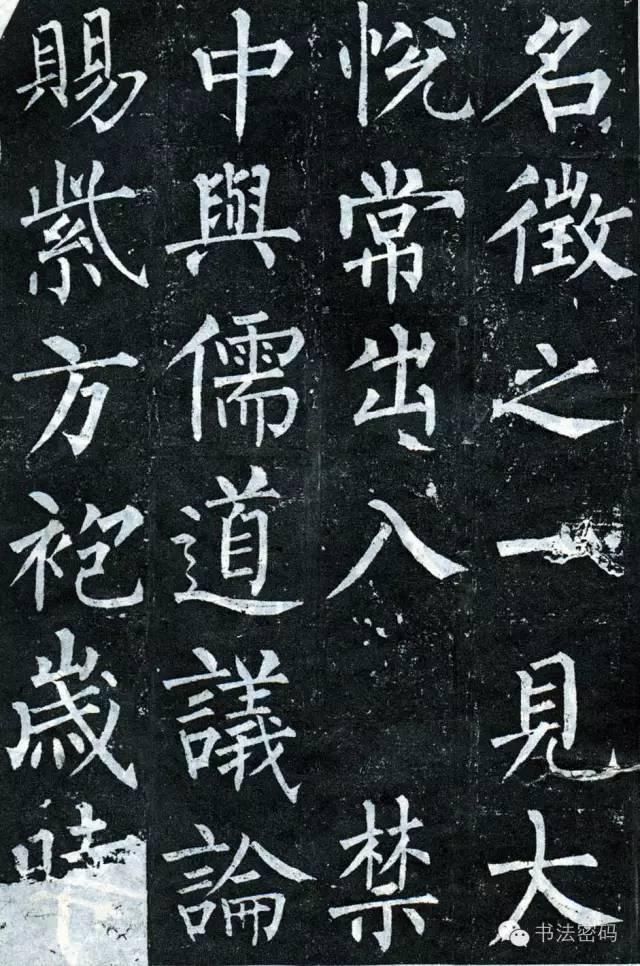 名徵之一見大
悅常出入禁
中與儒道議論
賜紫方袍歲時
书法密码